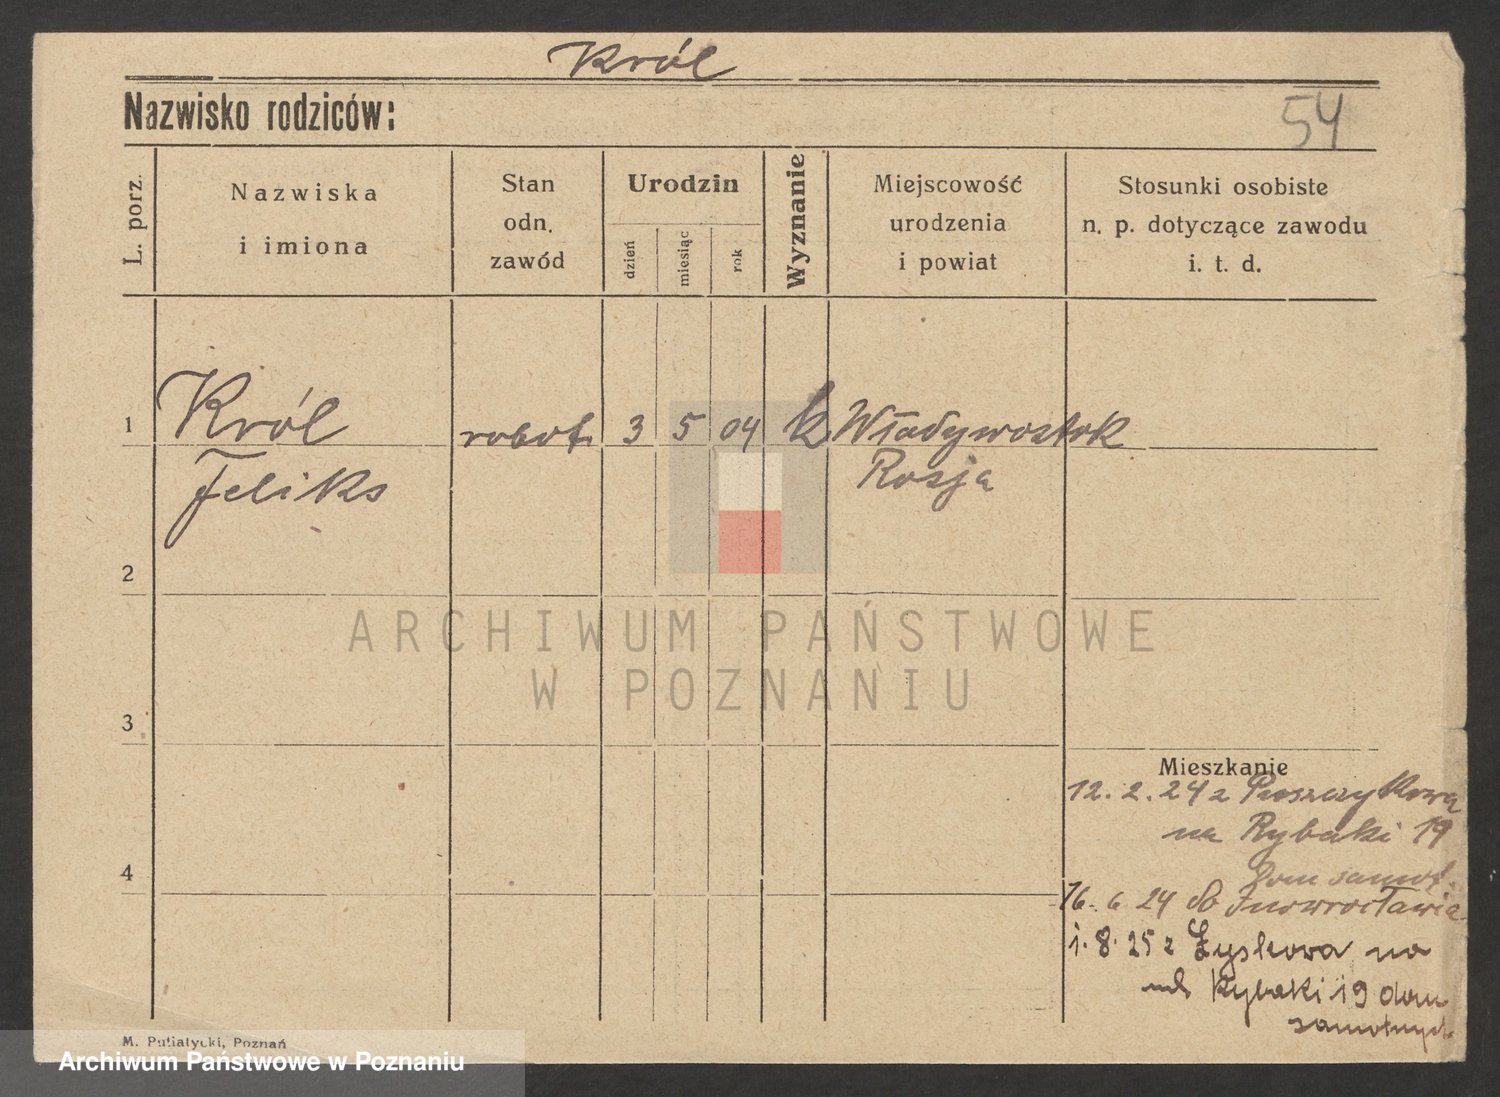 Król
Nazwisko rodziców:
54
L. porz.
Nazwiska
i imiona
Stan
odn.
zawód
Urodzin
dzień
miesiąc
rok
Wyznanie
Miejscowość
urodzenia
i powiat
Stosunki osobiste
n. p. dotyczące zawodu
i. t. d.
1
Król
robot.
3
5
04
k
Władywostok
Feliks
Rosja
2
ARCHIWUM PAŃSTWOWE
W POZNANIU
3
Mieszkanie
12. 2. 24 z
na Rybaki 19
4
Dom samot.
16. 6 24 do Inowrocławia
1. 8. 25 z Łyskowa na
ul. Rybaki 19 dom
samotnych
M. Putiatycki, Poznań
Archiwum Państwowe w Poznaniu